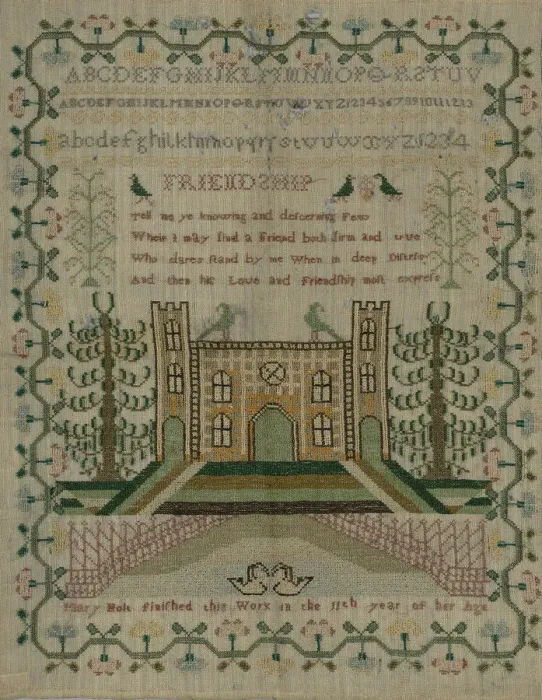 ABCDEFGHIJKLMNOPQRSTUV
ABCDEFGHIJKLMNOPQRSTUWXYZ12345678910111213
abcdefghiklmnopqrſstuvwxyz1234
FRIENDSHIP
Tell me ye knowing and descerning Few
Where I may find a Friend both firm and true
Who dares stand by me When in deep Distress
And then his Love and Friendship most express
Mary Holt finished this Work in the 11th year of her Age